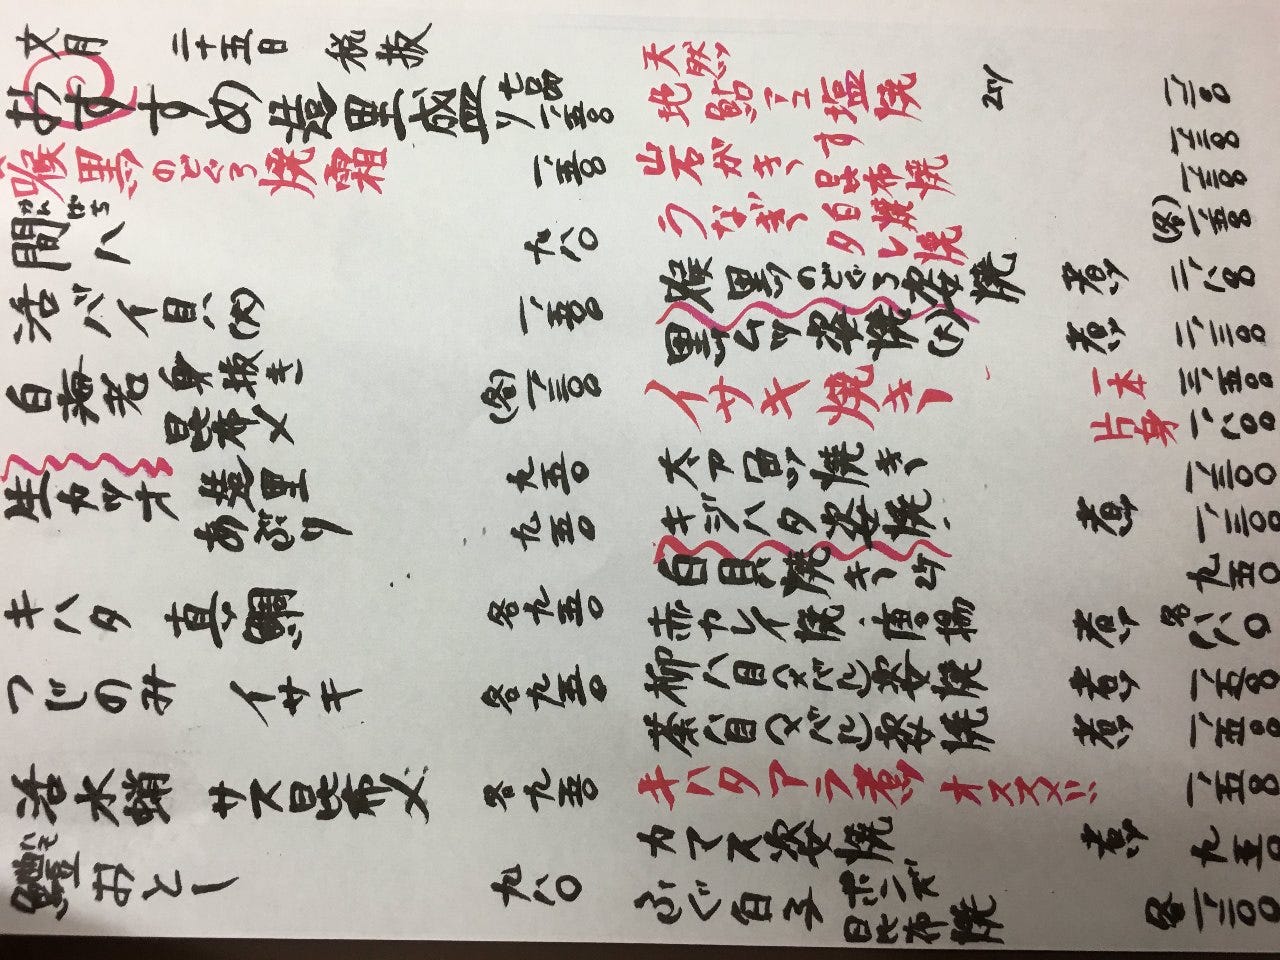 文月 二十五日 税抜
おすすめ造里盛 七品 一、五〇〇
喉黒のどぐろ焼霜 一、五〇〇
間八 かんぱち 九八〇
活バイ貝(大) 一、五〇〇
白海老 身抜き 昆布〆 (各)一、三〇〇
生カツオ 造里 九五〇
あぶり 九五〇
キハタ 真鯛 各九五〇
つじのみ イサキ 各九五〇
活水蛸 サス昆布〆 各九五〇
鱧おとし 九八〇
天然
地鮎塩焼 2ケ
岩がき、す
昆布焼
うなぎ、白焼
タレ焼 (各)
喉黒のどぐろ姿焼 煮 二、八〇〇
黒ムツ姿焼(大) 煮 二、三〇〇
イサキ焼き 一本 三、五〇〇
片身 一、八〇〇
太刀魚焼き 一、三〇〇
キジハタ姿焼 煮 一、三〇〇
白貝焼き 2ケ 九五〇
赤カレイ焼・唐揚 煮 各八八〇
柳八目(メバル)姿焼 煮 一、五〇〇
八目(メバル)姿焼 煮 一、五〇〇
キハタアラ煮 オススメ!! 一、五〇〇
カマス姿焼 煮 九五〇
ふぐ白子 ポンズ
昆布焼 各一、三〇〇